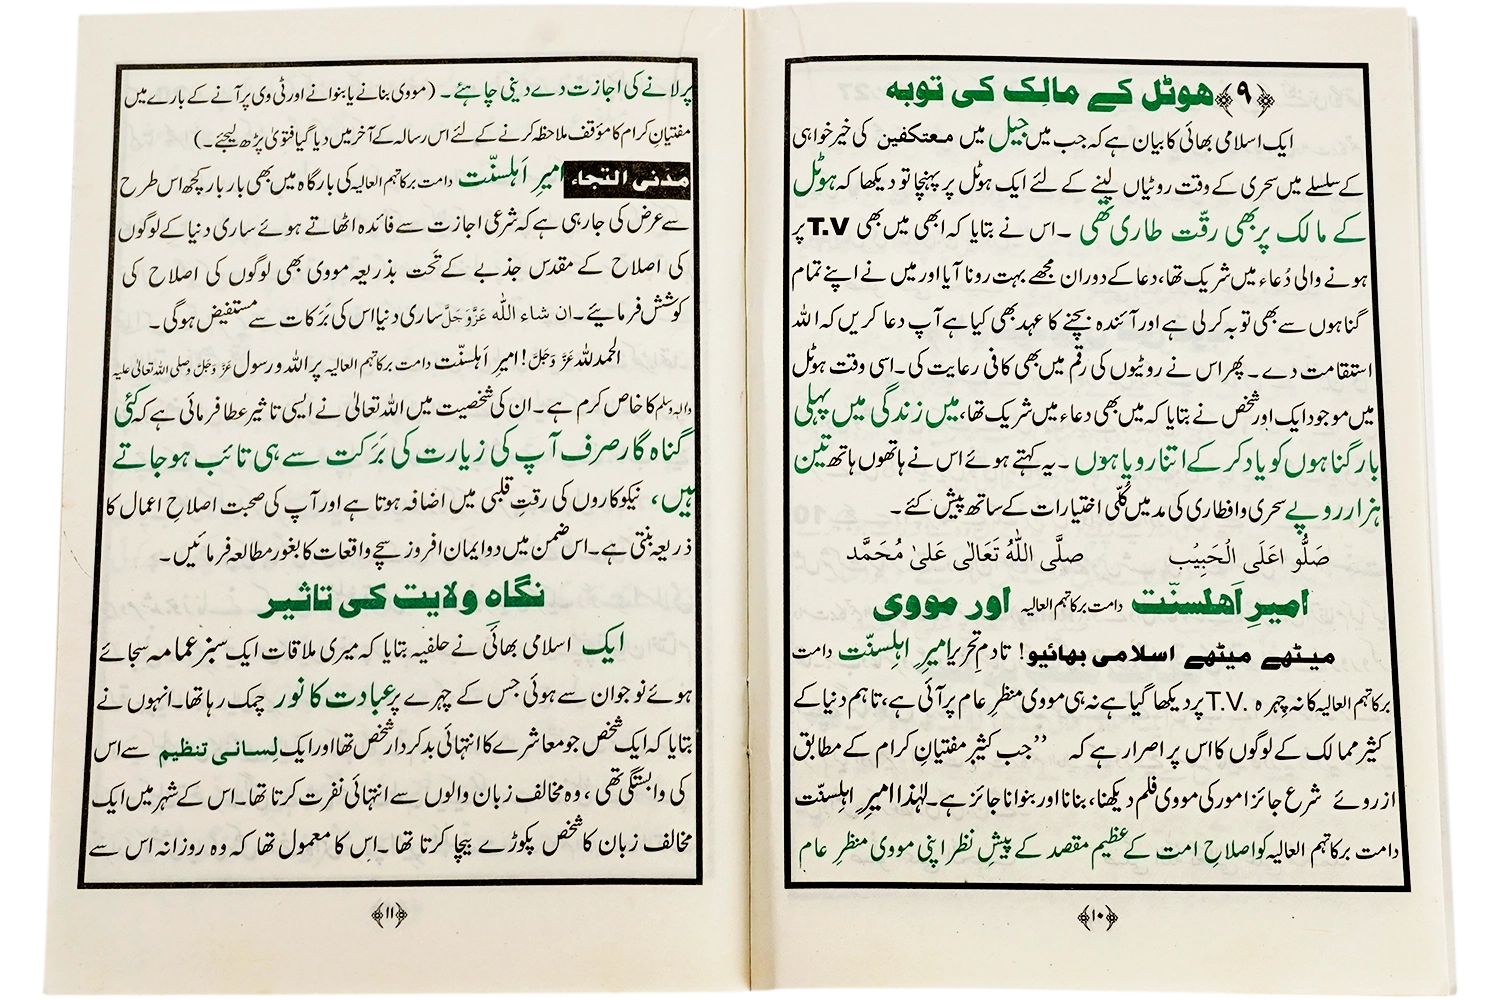 ﴿۹﴾ ھوٹل کے مالِک کی توبہ
ایک اسلامی بھائی کا بیان ہے کہ جب میں جیل میں معتکفین کی خیر خواہی
کے سلسلے میں سحری کے وقت روٹیاں لینے کے لئے ایک ہوٹل پر پہنچا تو دیکھا کہ ہوٹل
کے مالک پر بھی رقّت طاری تھی ۔ اس نے بتایا کہ ابھی میں بھی T.V پر
ہونے والی دُعاء میں شریک تھا، دعا کے دوران مجھے بہت رونا آیا اور میں نے اپنے تمام
گناہوں سے بھی توبہ کر لی ہے اور آئندہ بچنے کا عہد بھی کیا ہے آپ دعا کریں کہ اللہ
استقامت دے ۔ پھر اس نے روٹیوں کی رقم میں بھی کافی رعایت کی۔ اسی وقت ہوٹل
میں موجود ایک اور شخص نے بتایا کہ میں بھی دعاء میں شریک تھا، میں زندگی میں پہلی
بار گناہوں کو یاد کر کے اتنا رویا ہوں ۔ یہ کہتے ہوئے اس نے ہاتھوں ہاتھ تین
ہزار روپے سحری و افطاری کی مد میں کلّی اختیارات کے ساتھ پیش کئے ۔
صَلُّو اعَلَی الْحَبِیْب صلَّی اللّٰہُ تَعَالٰی عَلیٰ مُحَمَّد
امیرِ اَھلسنّت دامت برکاتہم العالیہ اور مووی
میٹھے میٹھے اسلامی بھائیو! تادمِ تحریر امیرِ اہلِسنّت دامت
برکاتہم العالیہ کا نہ چہرہ T.V. پر دیکھا گیا ہے نہ ہی مووی منظرِ عام پر آئی ہے، تاہم دنیا کے
کثیر ممالک کے لوگوں کا اس پر اصرار ہے کہ ’’جب کثیر مفتیانِ کرام کے مطابق
از روئے شرع جائز امور کی مووی فلم دیکھنا، بنانا اور بنوانا جائز ہے۔ لہٰذا امیرِ اہلسنّت
دامت برکاتہم العالیہ کو اصلاحِ امت کے عظیم مقصد کے پیشِ نظر اپنی مووی منظرِ عام
﴿۱۰﴾
پر لانے کی اجازت دے دینی چاہئے ۔ (مووی بنانے یا بنوانے اور ٹی وی پر آنے کے بارے میں
مفتیانِ کرام کا مؤقف ملاحظہ کرنے کے لئے اس رسالہ کے آخر میں دیا گیا فتویٰ پڑھ لیجئے ۔)
مدنی التجاء امیرِ اَہلسنّت دامت برکاتہم العالیہ کی بارگاہ میں بھی بار بار کچھ اس طرح
سے عرض کی جا رہی ہے کہ شرعی اجازت سے فائدہ اٹھاتے ہوئے ساری دنیا کے لوگوں
کی اصلاح کے مقدس جذبے کے تَحت بذریعہ مووی بھی لوگوں کی اصلاح کی
کوشش فرمائیے۔ ان شاء اللّٰہ عَزَّوَجَلَّ ساری دنیا اس کی بَرَکات سے مستفیض ہوگی ۔
الحمدللہ عَزَّ وَجَلَّ! امیرِ اَہلسنّت دامت برکاتہم العالیہ پر اللہ و رسول عَزَّ وَجَلَّ وصلی اللہ تعالیٰ علیہ
والہ وسلم کا خاص کرم ہے۔ ان کی شخصیت میں اللہ تعالیٰ نے ایسی تاثیر عطا فرمائی ہے کہ کئی
گناہ گار صرف آپ کی زیارت کی بَرَکت سے ہی تائب ہو جاتے
ہیں، نیکوکاروں کی رقتِ قلبی میں اضافہ ہوتا ہے اور آپ کی صحبت اصلاحِ اعمال کا
ذریعہ بنتی ہے۔ اس ضمن میں دو ایمان افروز سچے واقعات کا بغور مطالعہ فرمائیں۔
نگاہِ وِلایت کی تاثیر
ایک اسلامی بھائی نے حلفیہ بتایا کہ میری ملاقات ایک سبز عمامہ سجائے
ہوئے نوجوان سے ہوئی جس کے چہرے پر عبادت کا نور چمک رہا تھا۔ انہوں نے
بتایا کہ ایک شخص جو معاشرے کا انتہائی بد کردار شخص تھا اور ایک لِسانی تنظیم سے اس
کی وابستگی تھی ، وہ مخالف زبان والوں سے انتہائی نفرت کرتا تھا۔ اس کے شہر میں ایک
مخالف زبان کا شخص پکوڑے بیچا کرتا تھا ۔ اس کا معمول تھا کہ وہ روزانہ اس سے
﴿۱۱﴾